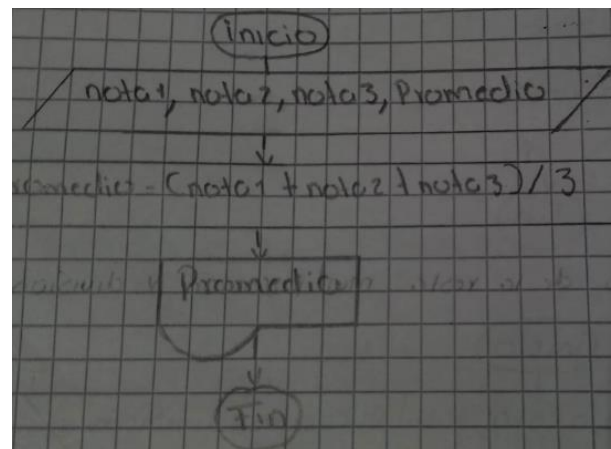 inicio
nota1, nota2, nota3, Promedio
Promedio = (nota1 + nota2 + nota3) / 3
Promedio
Fin